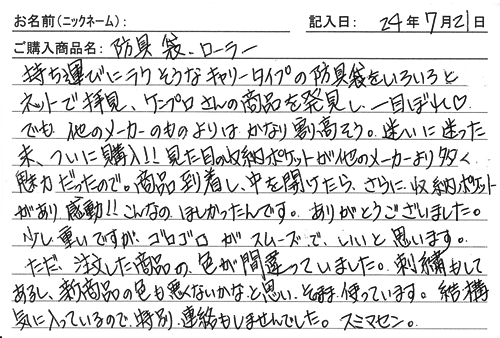 お名前(ニックネーム): 記入日: 24年7月21日
ご購入商品名: 防具袋、ローラー
持ち運びにラクそうなキャリータイプの防具袋をいろいろと
ネットで拝見、ケンプロさんの商品を発見し、一目ぼれ♡
でも、他のメーカーのものよりは、かなり割高そう。迷いに迷った
末、ついに購入!! 見た目の収納ポケットが他のメーカーより多く、
魅力だったので。商品到着し、中を開けたら、さらに収納ポケット
があり感動!! こんなの、ほしかったんです。ありがとうございました。
少し重いですが、ゴロゴロがスムーズで、いいと思います。
ただ、注文した商品の、色が間違っていました。刺繍もして
あるし、新商品の色も悪くないかな、と思い、そのまま使っています。結構
気に入っているので、特別、連絡もしませんでした。スミマセン。